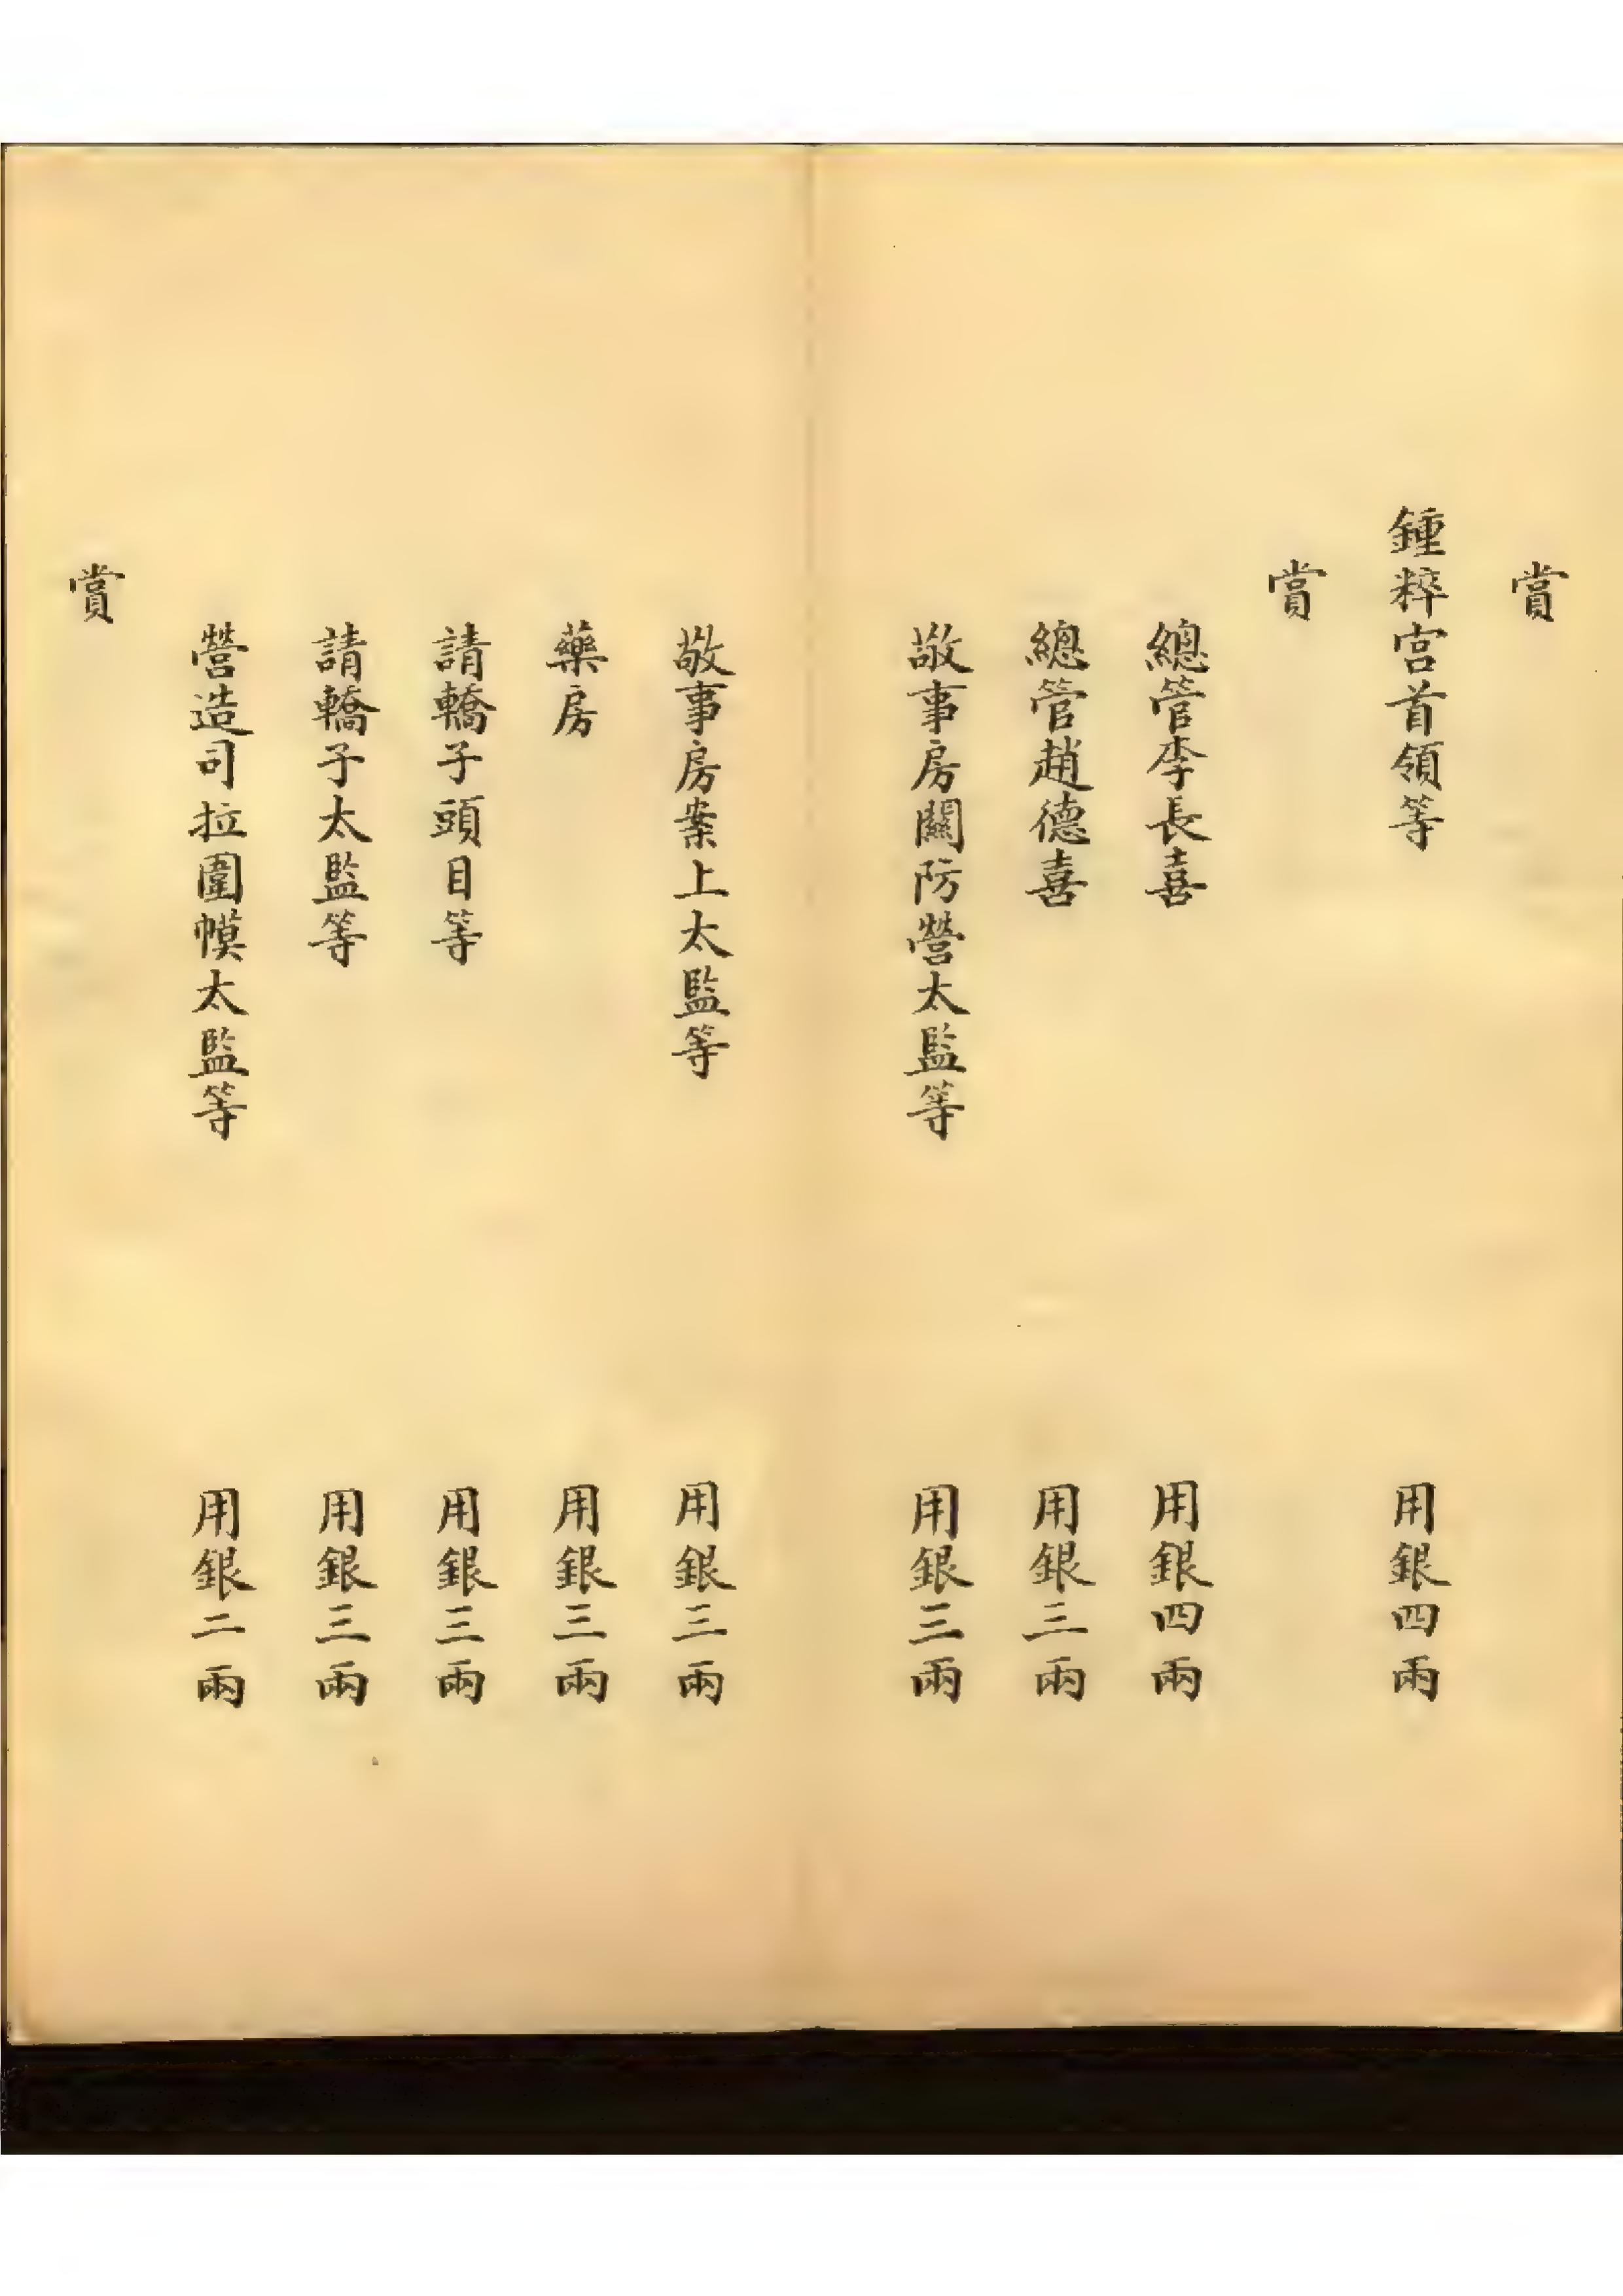 賞
鍾粹宮首領等 用銀四兩
賞
總管李長喜 用銀四兩
總管趙德喜 用銀三兩
敬事房關防營太監等 用銀三兩
敬事房案上太監等 用銀三兩
藥房 用銀三兩
請轎子頭目等 用銀三兩
請轎子太監等 用銀三兩
營造司拉圍幙太監等 用銀二兩
賞